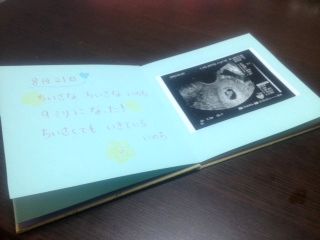 8月21日
ちいさな ちいさな いのち
9ミリになった!
ちいさくても いきている
いのち